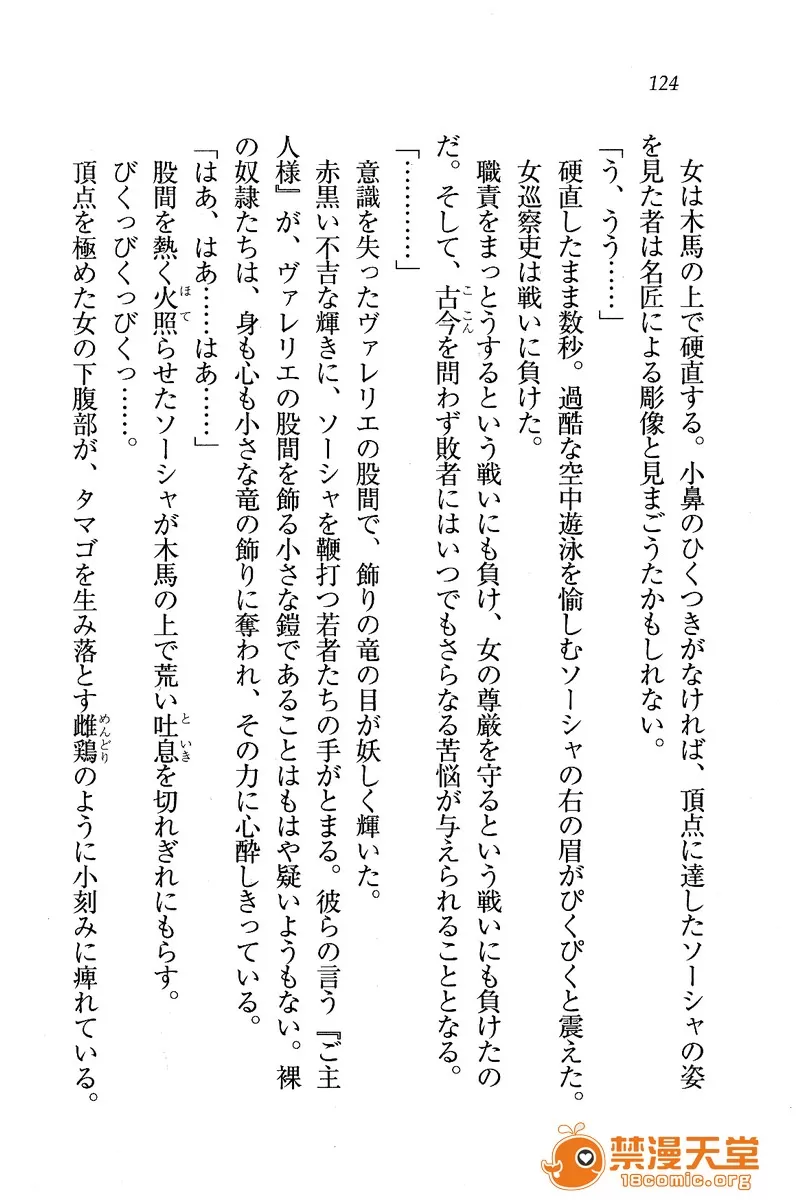 124
女は木馬の上で硬直する。小鼻のひくつきがなければ、頂点に達したソーシャの姿
を見た者は名匠による彫像と見まごうたかもしれない。
「う、うう……」
硬直したまま数秒。過酷な空中遊泳を愉しむソーシャの右の眉がぴくぴくと震えた。
女巡察吏は戦いに負けた。
職責をまっとうするという戦いにも負け、女の尊厳を守るという戦いにも負けたの
だ。そして、古今を問わず敗者にはいつでもさらなる苦悩が与えられることとなる。
「…………」
意識を失ったヴァレリエの股間で、飾りの竜の目が妖しく輝いた。
赤黒い不吉な輝きに、ソーシャを鞭打つ若者たちの手がとまる。彼らの言う『ご主
人様』が、ヴァレリエの股間を飾る小さな鎧であることはもはや疑いようもない。裸
の奴隷たちは、身も心も小さな竜の飾りに奪われ、その力に心酔しきっている。
「はあ、はあ……はあ……」
股間を熱く火照らせたソーシャが木馬の上で荒い吐息を切れぎれにもらす。
びくっびくっびくっ……。
頂点を極めた女の下腹部が、タマゴを生み落とす雌鶏のように小刻みに痺れている。
ここん
ほて
といき
めんどり
禁漫天堂
18comic.org